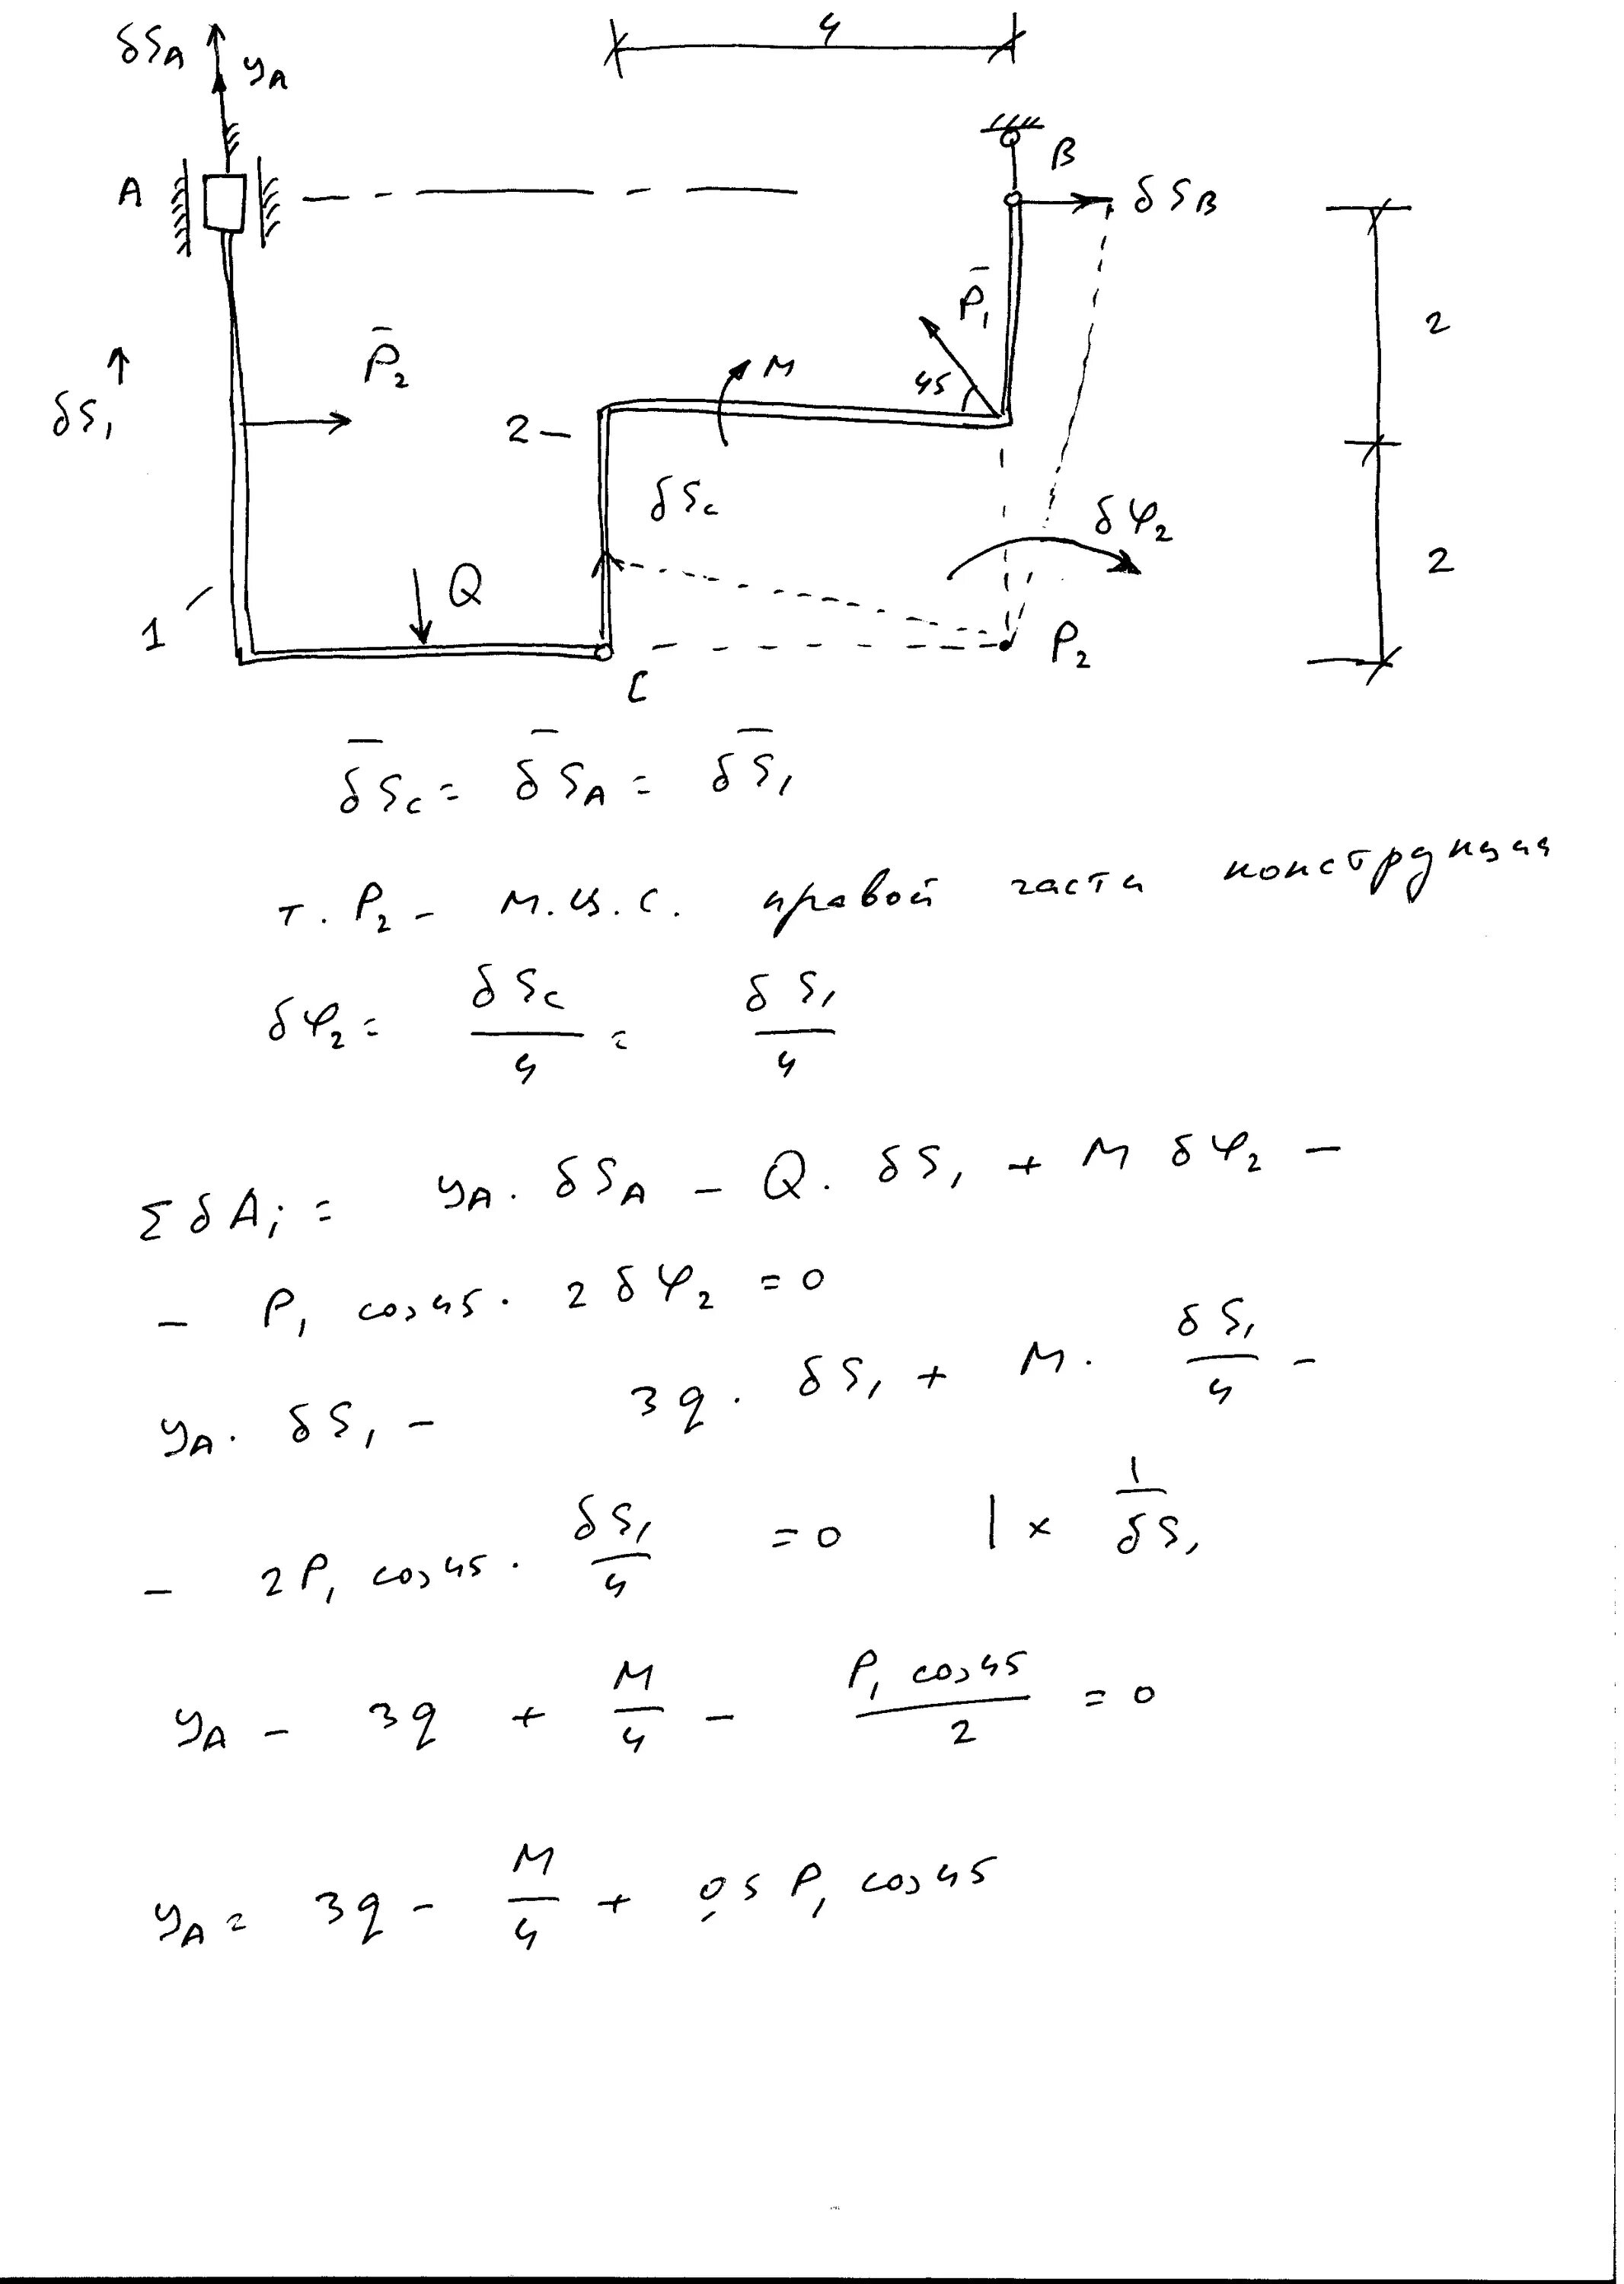 4
δS_A
y_A
A
B
δS_B
P̄₁
2
P̄₂
M
45
δS₁
2
δS_c
δφ₂
Q
2
1
P₂
C
δS̄_c = δS̄_A = δS̄₁
т. P₂ – м.ц.с. правой части конструкции
δφ₂ = δS_c/4 = δS₁/4
ΣδA_i = y_A · δS_A – Q · δS₁ + M δφ₂ –
– P₁ cos45 · 2 δφ₂ = 0
y_A · δS₁ – 3q · δS₁ + M · δS₁/4 –
– 2P₁ cos45 · δS₁/4 = 0 | × 1/δS₁
y_A – 3q + M/4 – P₁ cos45/2 = 0
y_A = 3q – M/4 + 0,5 P₁ cos45